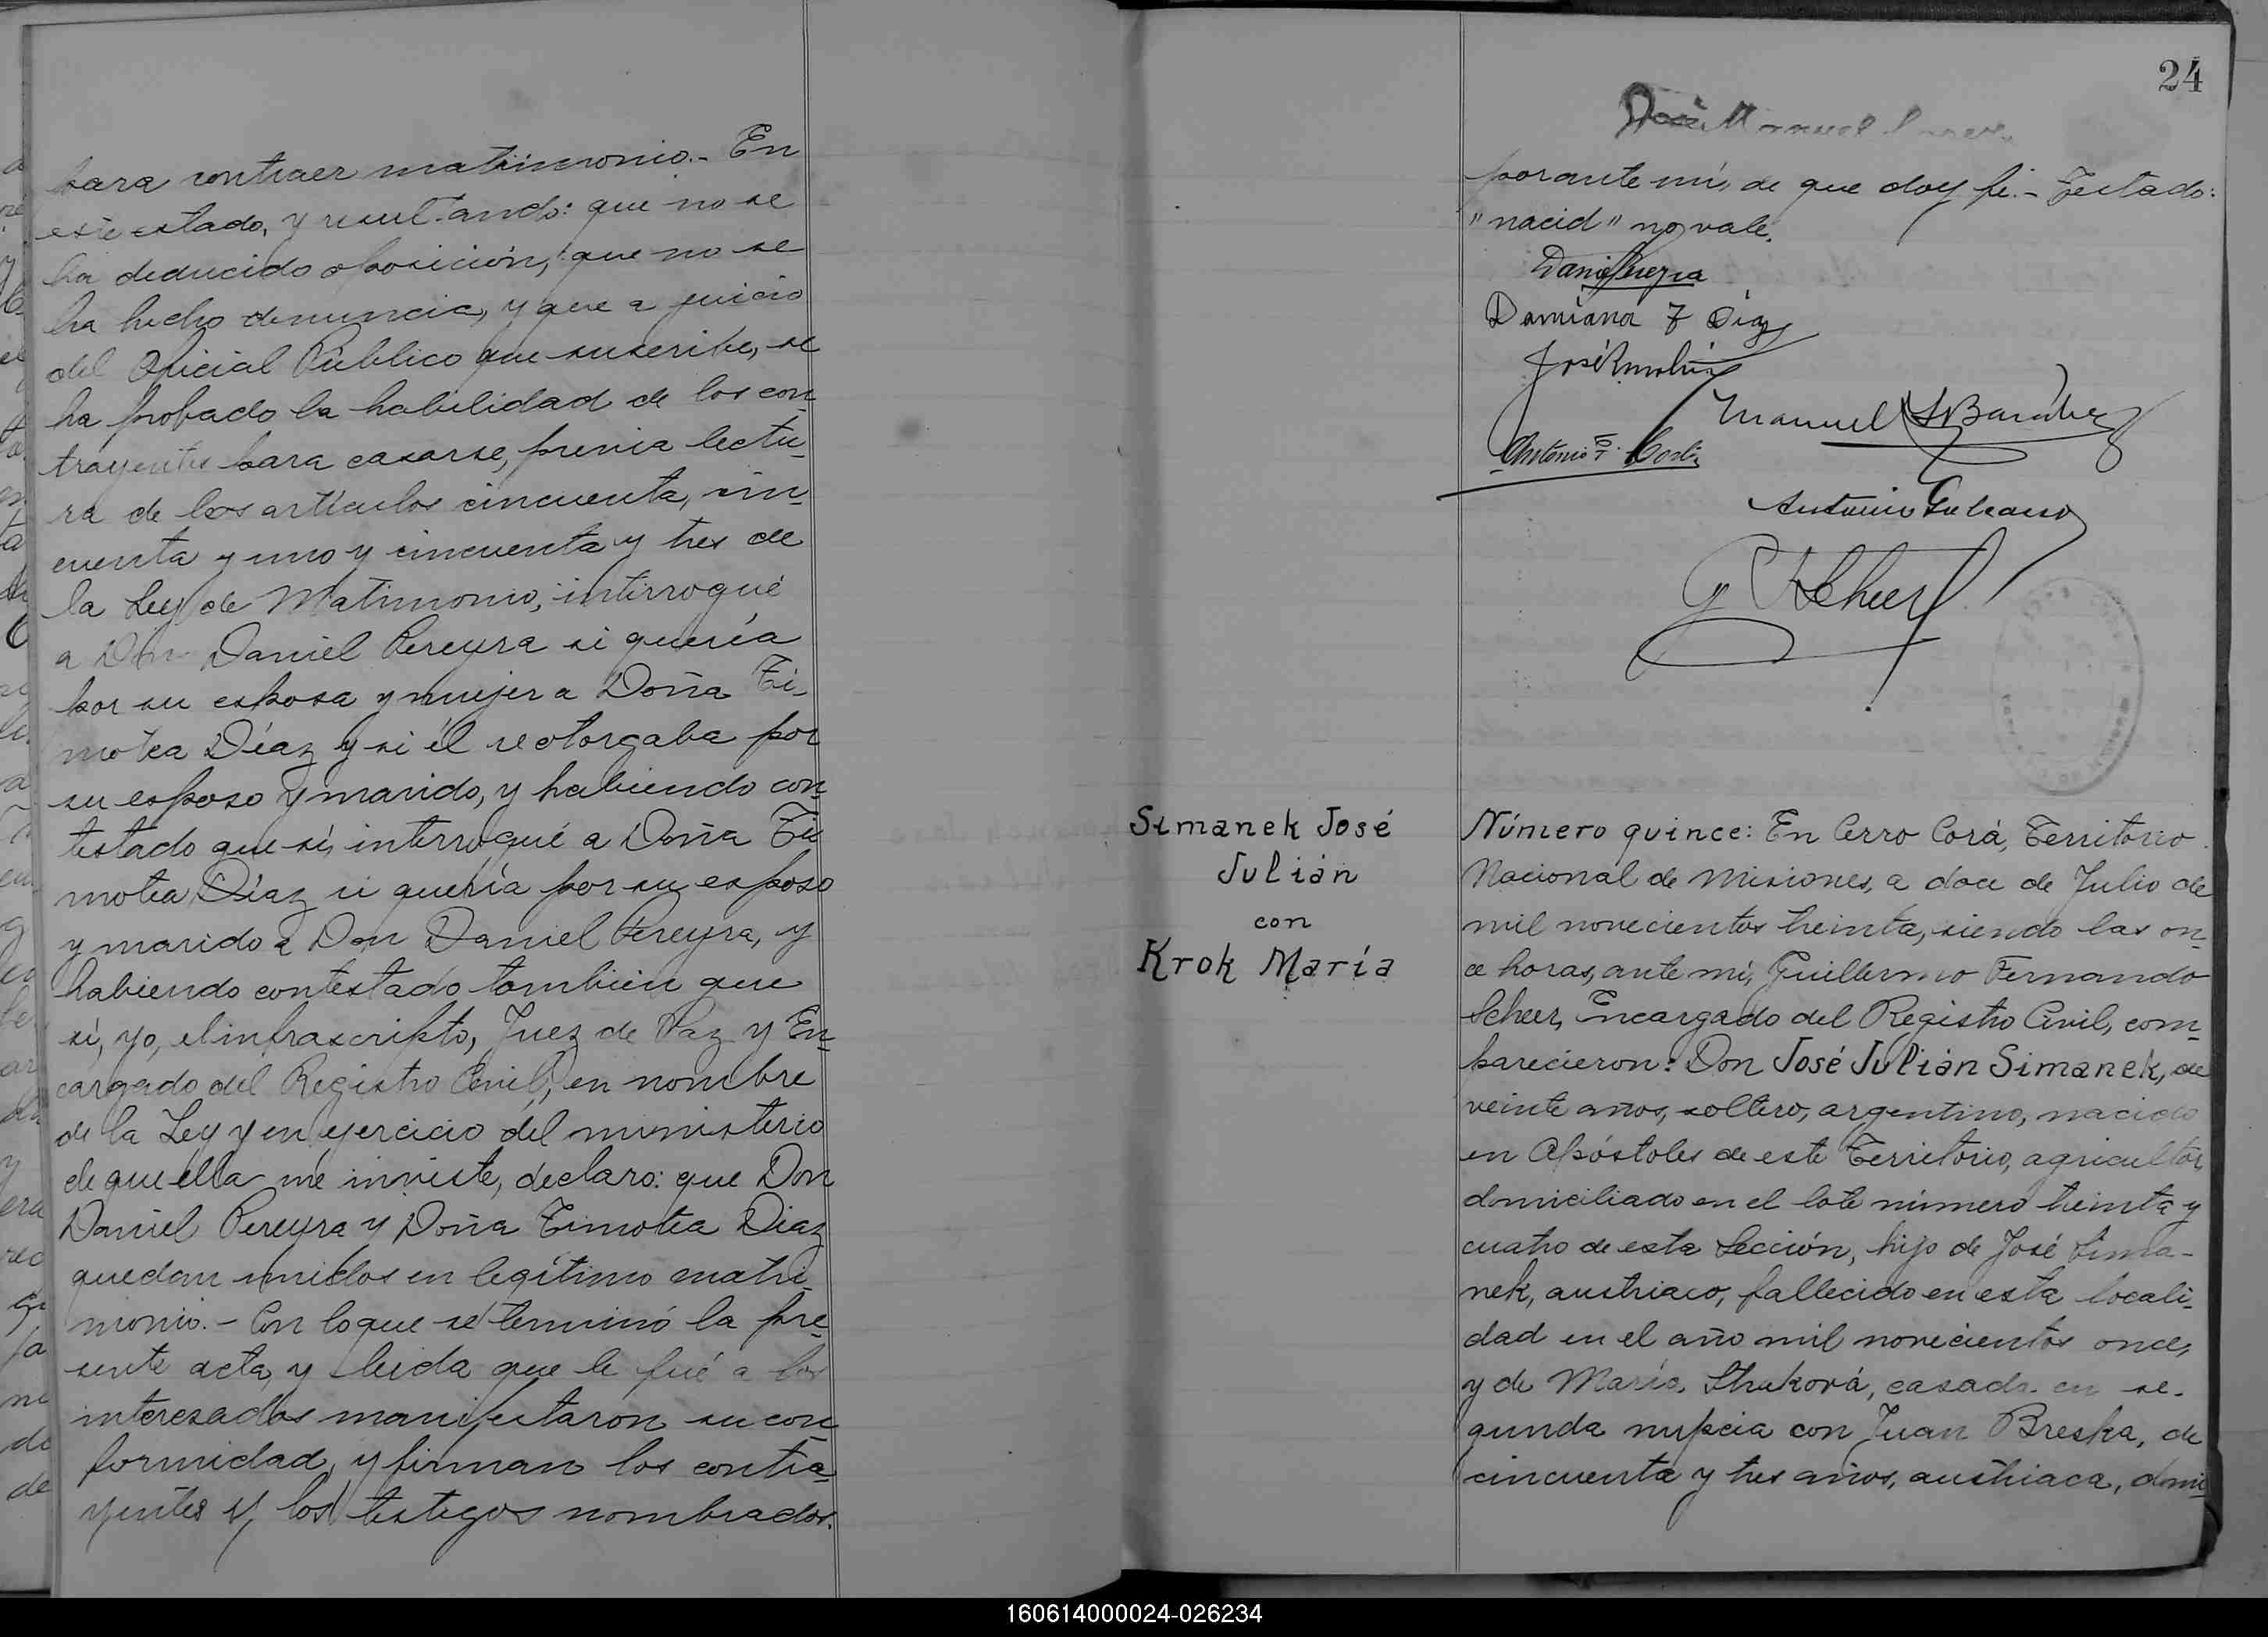 para contraer matrimonio.- En
este estado, y resultando: que no se
ha deducido oposición, que no se
ha hecho denuncia, y que a juicio
del Oficial Público que suscribe, se
ha probado la habilidad de los con-
trayentes para casarse, previa lectu-
ra de los artículos cincuenta, cin-
cuenta y uno y cincuenta y tres de
la Ley de Matrimonio, interrogué
a Don Daniel Pereyra si quería
por su esposa y mujer a Doña Ti-
motea Díaz y si él se otorgaba por
su esposo y marido, y habiendo con-
testado que sí, interrogué a Doña Ti-
motea Díaz si quería por su esposo
y marido a Don Daniel Pereyra, y
habiendo contestado tambien que
sí, yo, el infrascripto, Juez de Paz y En-
cargado del Registro Civil, en nombre
de la Ley y en ejercicio del ministerio
de que ella me inviste, declaro: que Don
Daniel Pereyra y Doña Timotea Diaz
quedan unidos en legítimo matri-
monio.- Con lo que se terminó la pre-
sente acta, y leida que le fué a los
interesados manifestaron su con-
formidad, y firman los contra-
yentes y los testigos nombrados.
24
Manuel
por ante mí, de que doy fé.- Testado:
"nacid" no vale.
Daniel Pereyra
Damiana T Diaz
José
Manuel
Antonio
Antonio Galeano
G F Scheer
Simanek José
Julián
con
Krok María
Número quince: En Cerro Corá, Territorio
Nacional de Misiones, a doce de Julio de
mil novecientos treinta, siendo las on-
ce horas, ante mí, Guillermo Fernando
Scheer, Encargado del Registro Civil, com-
parecieron: Don José Julián Simanek, de
veinte años, soltero, argentino, nacido
en Apóstoles de este Territorio, agricultor,
domiciliado en el lote número treinta y
cuatro de esta Sección, hijo de José Sima-
nek, austriaco, fallecido en esta locali-
dad en el año mil novecientos once,
y de María Struková, casada en se-
gunda nupcia con Juan Breska, de
cincuenta y tres años, austriaca, domi-
160614000024-026234